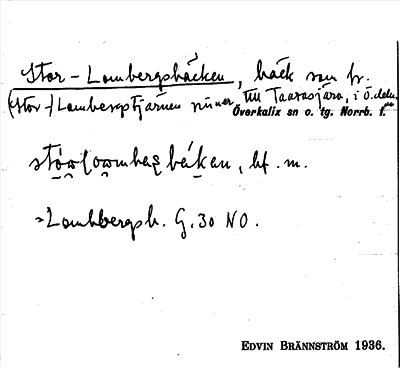 Stor-Lombergsbäcken, bäck som fr.
(Stor-)Lombergstjärnen rinner till Taarasjärv, i Ö. delen
Överkalix sn o. tg. Norrb. l.
bf. m.
=Lombbergsb. G. 30 NO.
EDVIN BRÄNNSTRÖM 1936.